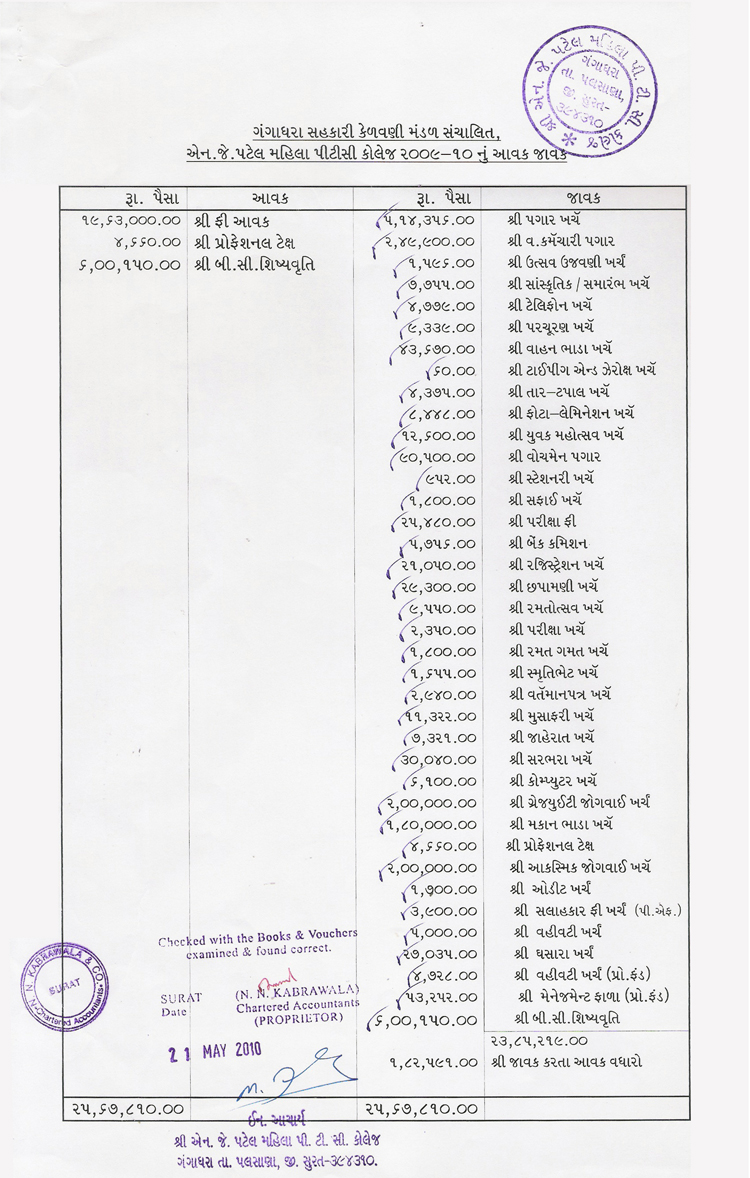 શ્રી એન. જે. પટેલ મહિલા પી. ટી. સી. કોલેજ
ગંગાધરા
તા. પલસાણા,
જી. સુરત-
૩૯૪૩૧૦
ગંગાધરા સહકારી કેળવણી મંડળ સંચાલિત,
એન.જે.પટેલ મહિલા પીટીસી કોલેજ ૨૦૦૯–૧૦ નું આવક જાવક
રૂા. પૈસા આવક રૂા. પૈસા જાવક
૧૯,૬૩,૦૦૦.૦૦ શ્રી ફી આવક ૫,૧૪,૩૫૬.૦૦ શ્રી પગાર ખર્ચ
૪,૬૬૦.૦૦ શ્રી પ્રોફેશનલ ટેક્ષ ૨,૪૯,૯૦૦.૦૦ શ્રી વ.કર્મચારી પગાર
૬,૦૦,૧૫૦.૦૦ શ્રી બી.સી.શિષ્યવૃતિ ૧,૫૯૬.૦૦ શ્રી ઉત્સવ ઉજવણી ખર્ચ
૭,૭૫૫.૦૦ શ્રી સાંસ્કૃતિક / સમારંભ ખર્ચ
૪,૭૭૯.૦૦ શ્રી ટેલિફોન ખર્ચ
૯,૩૩૯.૦૦ શ્રી પરચૂરણ ખર્ચ
૪૩,૬૭૦.૦૦ શ્રી વાહન ભાડા ખર્ચ
૬૦.૦૦ શ્રી ટાઈપીંગ એન્ડ ઝેરોક્ષ ખર્ચ
૪,૩૭૫.૦૦ શ્રી તાર–ટપાલ ખર્ચ
૮,૪૪૮.૦૦ શ્રી ફોટા–લેમિનેશન ખર્ચ
૧૨,૬૦૦.૦૦ શ્રી યુવક મહોત્સવ ખર્ચ
૯૦,૫૦૦.૦૦ શ્રી વોચમેન પગાર
૯૫૨.૦૦ શ્રી સ્ટેશનરી ખર્ચ
૧,૮૦૦.૦૦ શ્રી સફાઈ ખર્ચ
૨૫,૪૮૦.૦૦ શ્રી પરીક્ષા ફી
૫,૭૫૬.૦૦ શ્રી બેંક કમિશન
૨૧,૦૫૦.૦૦ શ્રી રજિસ્ટ્રેશન ખર્ચ
૨૯,૩૦૦.૦૦ શ્રી છપામણી ખર્ચ
૯,૫૫૦.૦૦ શ્રી રમતોત્સવ ખર્ચ
૨,૩૫૦.૦૦ શ્રી પરીક્ષા ખર્ચ
૧,૮૦૦.૦૦ શ્રી રમત ગમત ખર્ચ
૧,૬૫૫.૦૦ શ્રી સ્મૃતિભેટ ખર્ચ
૨,૯૪૦.૦૦ શ્રી વર્તમાનપત્ર ખર્ચ
૧૧,૩૨૨.૦૦ શ્રી મુસાફરી ખર્ચ
૭,૩૨૧.૦૦ શ્રી જાહેરાત ખર્ચ
૩૦,૦૪૦.૦૦ શ્રી સરભરા ખર્ચ
૬,૧૦૦.૦૦ શ્રી કોમ્પ્યુટર ખર્ચ
૨,૦૦,૦૦૦.૦૦ શ્રી ગ્રેજયુઈટી જોગવાઈ ખર્ચ
૧,૮૦,૦૦૦.૦૦ શ્રી મકાન ભાડા ખર્ચ
૪,૬૬૦.૦૦ શ્રી પ્રોફેશનલ ટેક્ષ
૨,૦૦,૦૦૦.૦૦ શ્રી આકસ્મિક જોગવાઈ ખર્ચ
૧,૭૦૦.૦૦ શ્રી ઓડીટ ખર્ચ
૩,૯૦૦.૦૦ શ્રી સલાહકાર ફી ખર્ચ (પી.એફ.)
૫,૦૦૦.૦૦ શ્રી વહીવટી ખર્ચ
૨૭,૦૩૫.૦૦ શ્રી ઘસારા ખર્ચ
૪,૭૨૮.૦૦ શ્રી વહીવટી ખર્ચ (પ્રો.ફંડ)
૫૩,૨૫૨.૦૦ શ્રી મેનેજમેન્ટ ફાળા (પ્રો.ફંડ)
૬,૦૦,૧૫૦.૦૦ શ્રી બી.સી.શિષ્યવૃતિ
૨૩,૮૫,૨૧૯.૦૦
૧,૮૨,૫૯૧.૦૦ શ્રી જાવક કરતા આવક વધારો
૨૫,૬૭,૮૧૦.૦૦ ૨૫,૬૭,૮૧૦.૦૦
Checked with the Books & Vouchers
examined & found correct.
N. N. KABRAWALA & CO.
SURAT
Chartered Accountants
SURAT (N. N. KABRAWALA)
Date Chartered Accountants
(PROPRIETOR)
21 MAY 2010
ઈન. આચાર્ય
શ્રી એન. જે. પટેલ મહિલા પી. ટી. સી. કોલેજ
ગંગાધરા તા. પલસાણા, જી. સુરત-૩૯૪૩૧૦.